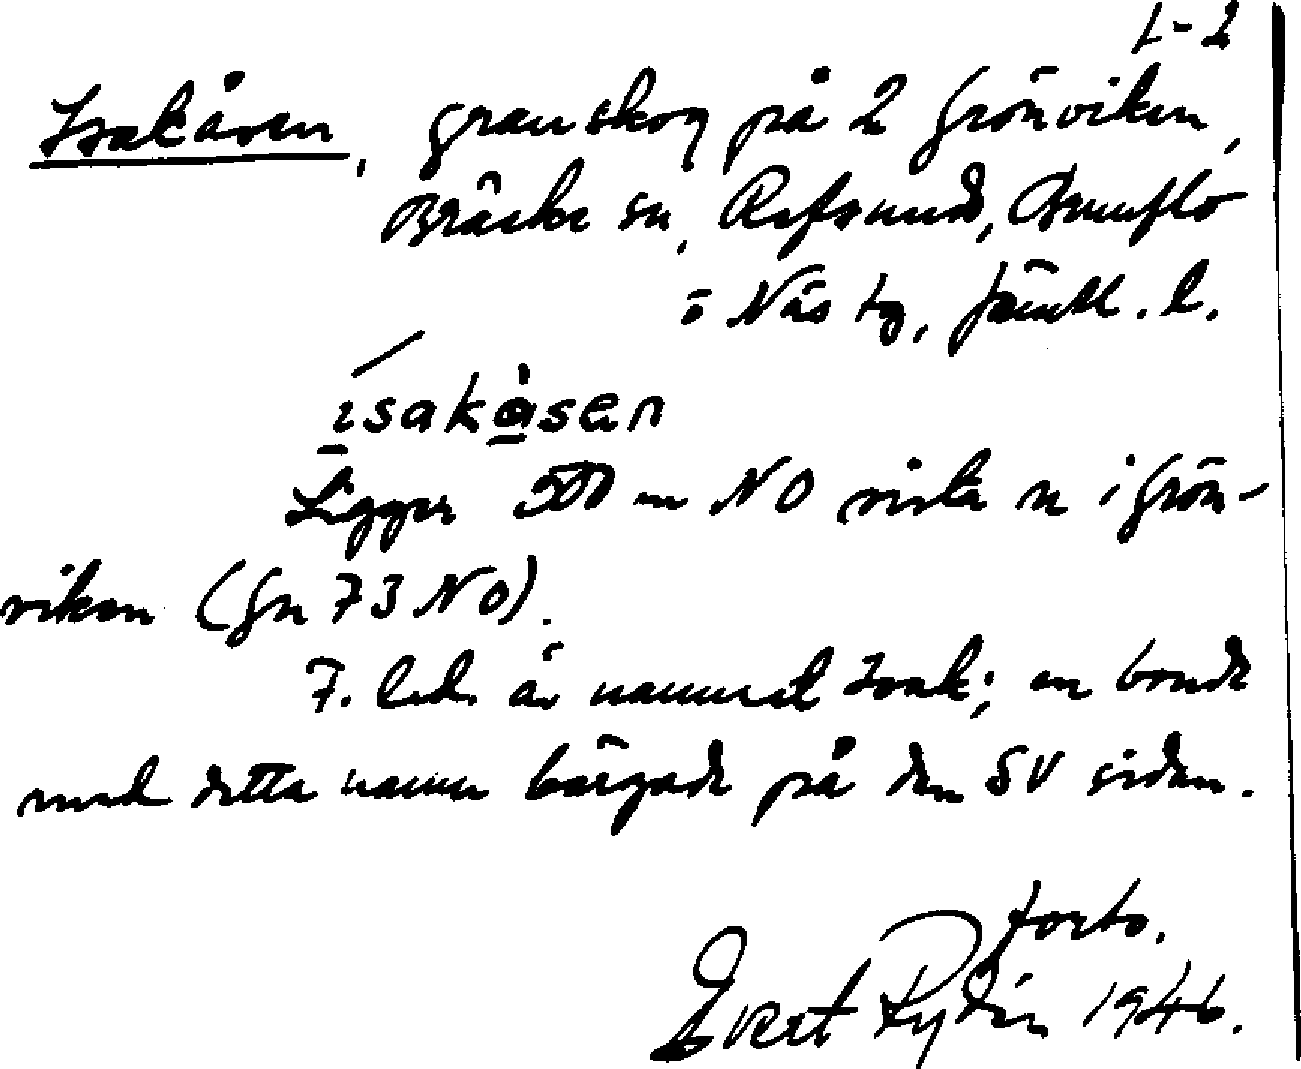 1-2
Isakåsen, granskog på 2 Grönviken,
Bräcke sn, Refsund, Brunflo
o Näs tg, Jämtl. l.
ísakåsen
Ligger 500 m NO sista n i Grön-
viken (Gn 73 NO).
F. led. är namnet Isak; en bonde
med detta namn bärgade på den SV sidan.
forts.
Evert Rydén 1946.